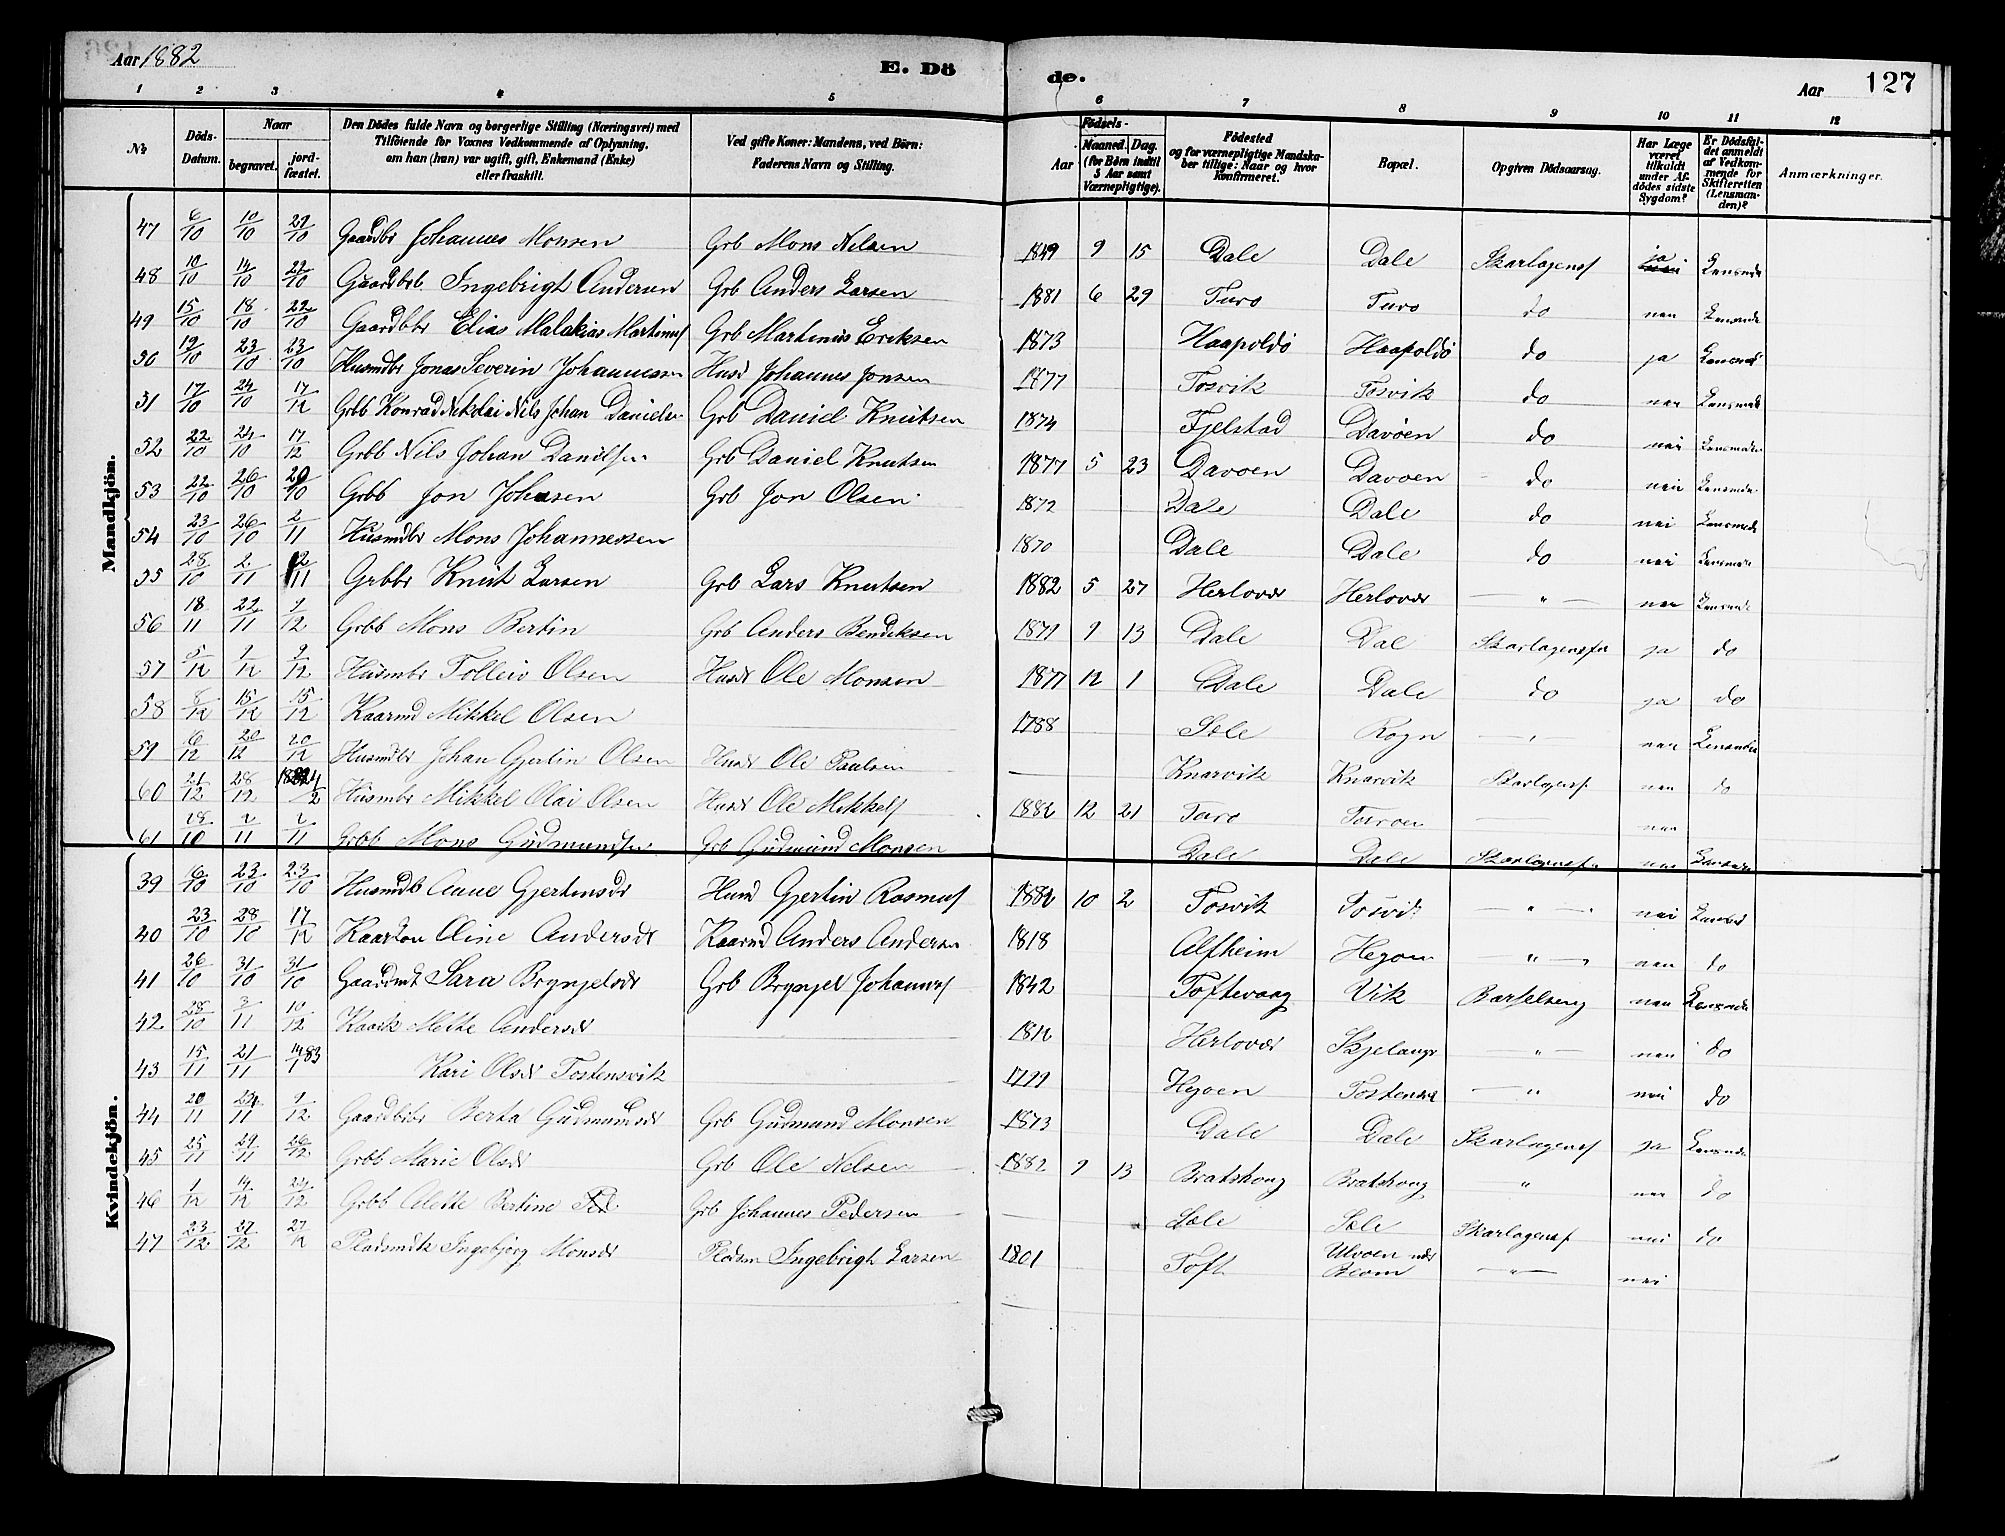 Aar 1882
E. Dö
de.
Aar
127
1 2 3 4 5 6 7 8 9 10 11 12
№
Döds-Datum.
Naar
begravet.
jord-fæstet.
Den Dödes fulde Navn og borgerlige Stilling (Næringsvei) med
Tilföiende for Voxnes Vedkommende af Oplysning,
om han (hun) var ugift, gift, Enkemand (Enke)
eller fraskilt.
Ved gifte Koner: Mandens, ved Börn:
Faderens Navn og Stilling.
Födsels-
Aar
Maaned. Dag.
(for Börn indtil
5 Aar samt
Værnepligtige).
Födested
og for værnepligtige Mandska-
ber tillige: Naar og hvor
konfirmeret.
Bopæl.
Opgiven Dödsaarsag.
Har Læge
været
tilkaldt
under Af-
dödes sidste
Sygdom?
Er Dödsfal-
det anmeldt
af Vedkom-
mende for
Skifteretten
(Lensman-
den)?
Anmærkninger.
Mandkjön.
47 6/10 10/10 22/10 Gaardbr Johannes Monsen Grb Mons Nelsen 1849 9 15 Dale Dale Skarlagensf ja Lensmde
48 10/10 14/10 22/10 Gaardbrb Ingebrigt Andersen Grb Anders Larsen 1881 6 29 Turo Turo do nei Lensmde
49 15/10 18/10 22/10 Gaardbbr Elias Malakias Martinusf Grb Martinus Eriksen 1873 Haapoldö Haapoldö do ja Lensmd
50 19/10 23/10 23/10 Husmdbr Jonas Severin Johannessen Husd Johannes Jonsen 1877 Tosvik Tosvik do nei Lensmde
51 17/10 24/10 17/12 Grbb Konrad Nikolai Nils Johan Danielsn Grb Daniel Knutsen 1874 Fjelstad Davöen do nei Lensmde
52 22/10 24/10 17/12 Grbb Nils Johan Danilsen Grb Daniel Knutsen 1877 5 23 Davoen Davoen do nei Lensmde
53 22/10 26/10 29/10 Grbb Jon Johnsen Grb Jon Olsen 1872 Dale Dale do nei Lensmde
54 23/10 26/10 2/11 Husmdbr Mons Johannessen 1870 Dale Dale do nei Lensmde
55 28/10 2/11 12/11 Grbbr Knut Larsen Grb Lars Knutsen 1882 5 27 Herlover Herlover — " — nei Lensmde
56 18/11 22/11 9/12 Grbb Mons Bertin Grb Anders Bendiksen 1871 9 13 Dale Dal Skarlagensfr ja do
57 5/12 9/12 9/12 Husmbr Tolleiv Olsen Husd Ole Monsen 1877 12 1 Dale Dale do ja do
58 8/12 15/12 15/12 Kaarmd Mikkel Olsen 1788 Sole Rogn — " — nei Lensmde
59 6/12 20/12 20/12 Husmdbr Johan Gjertin Olsen Husd Ole Paulsen — Knarvik Knarvik Skarlagensf nei do
60 21/12 28/12 1883 4/2 Husmbr Mikkel Olai Olsen Husd Ole Mikkelsf 1882 12 21 Turo Turoen — nei
61 28/10 2/11 2/11 Grbb Mons Gudmundsen Grb Gudmund Monsen Dale Dale Skarlagensfr nei Lensmde
Kvindekjön.
39 6/10 23/10 23/10 Husmdb Anne Gjertinsdr Husm Gjertin Rasmusf 1882 10 2 Tosvik Tosvik — " — nei Lensmd
40 23/10 28/10 17/12 Kaarkon Oline Andersdr Kaarmd Anders Andersen 1818 Alfheim Hegoen — " — nei do
41 26/10 31/10 31/10 Gaardmk Sara Brynjelsdr Grb Brynjel Johannesf 1842 Toftevaag Vik Barselseng nei Lensmde
42 28/10 3/11 10/12 Kaark Mette Andersdr 1812 Herlover Skjelanger — " — nei do
43 15/11 21/11 14/1 83 Kari Olsdr Tostensvik 1799 Hegoen Tostensvi — " nei do
44 20/11 24/11 9/12 Gaardbbr Berta Gudmundsdr Grb Gudmund Monsen 1873 Dale Dale Skarlagensf ja Lensmde
45 25/11 29/11 26/12 Grbb Marie Olsdr Grb Ole Nelsen 1882 9 13 Bratshaug Bratshaug " nei do
46 1/12 14/12 24/12 Grbb Alette Bertine Ped. Grb Johannes Pedersen — Sole Sole Skarlagensf nei do
47 23/12 27/12 27/12 Pladsmdk Ingebjørg Monsdr Pladsm Ingebrigt Larsen 1801 Toft Ulvoen under Blom — " — nei